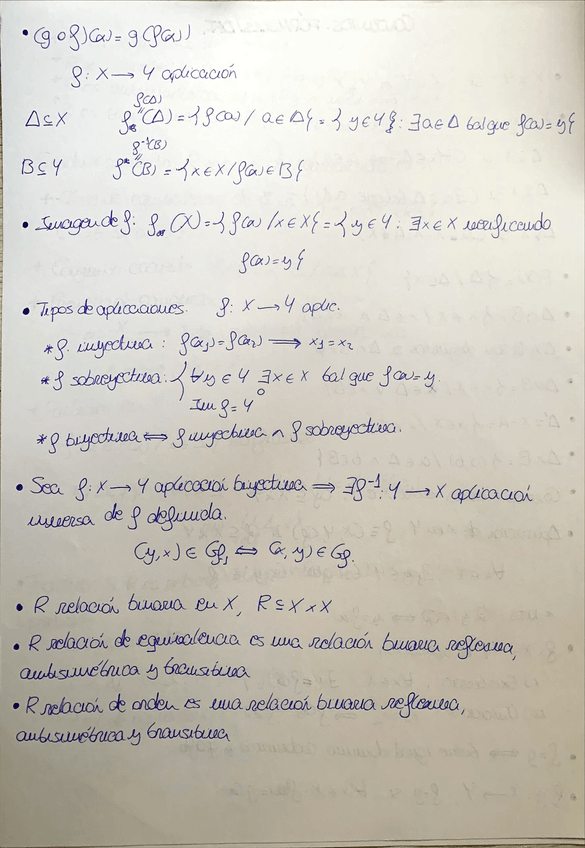 • (g o f)(a) = g(f(a))
f: X → Y aplicación
f(A)
A ⊆ X f_*(A) = { f(a) / a ∈ A } = { y ∈ Y } : ∃a ∈ A tal que f(a) = y }
f⁻¹(B)
B ⊆ Y f*(B) = { x ∈ X / f(x) ∈ B }
• Imagen de f: f_*(X) = { f(x) / x ∈ X } = { y ∈ Y : ∃x ∈ X verificando
f(x) = y }
• Tipos de aplicaciones. f: X → Y aplic.
* f inyectiva : f(x₁) = f(x₂) ⟹ x₁ = x₂
* f sobreyectiva: { ∀y ∈ Y ∃x ∈ X tal que f(x) = y.
o
Im f = Y
* f biyectiva ⟺ f inyectiva ∧ f sobreyectiva.
• Sea f: X → Y aplicación biyectiva ⟹ ∃f⁻¹: Y → X aplicación
inversa de f definida.
(y, x) ∈ Gf⁻¹ ⟺ (x, y) ∈ Gf.
• R relación binaria en X, R ⊆ X × X
• R relación de equivalencia es una relación binaria reflexiva,
antisimétrica y transitiva
• R relación de orden es una relación binaria reflexiva,
antisimétrica y transitiva